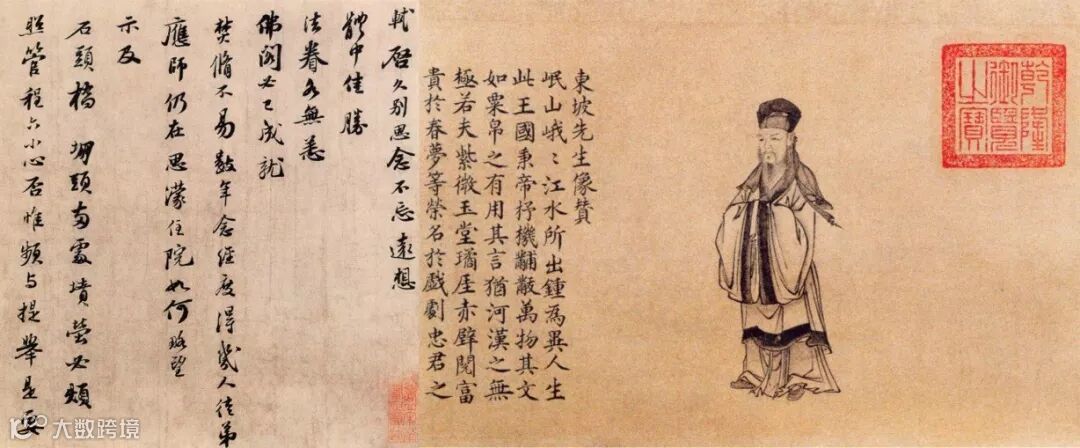 乾隆
御覽
之寶
東坡先生像贊
岷山峨〻江水所出鍾為異人生
此王國秉帝杼機黼黻萬物其文
如粟帛之有用其言猶河漢之無
極若夫紫微玉堂瓊厓赤壁閱富
貴於春夢等榮名於戲劇忠君之
軾啓久別思念不忘遠想
體中佳勝
法眷各無恙
佛閣必已成就
焚脩不易數年念經度得幾人徒弟
應師仍在思濛住院如何略望
示及
石頭橋堋頭兩處墳塋必煩
照管程六小心否惟頻与提舉是要
大数跨境